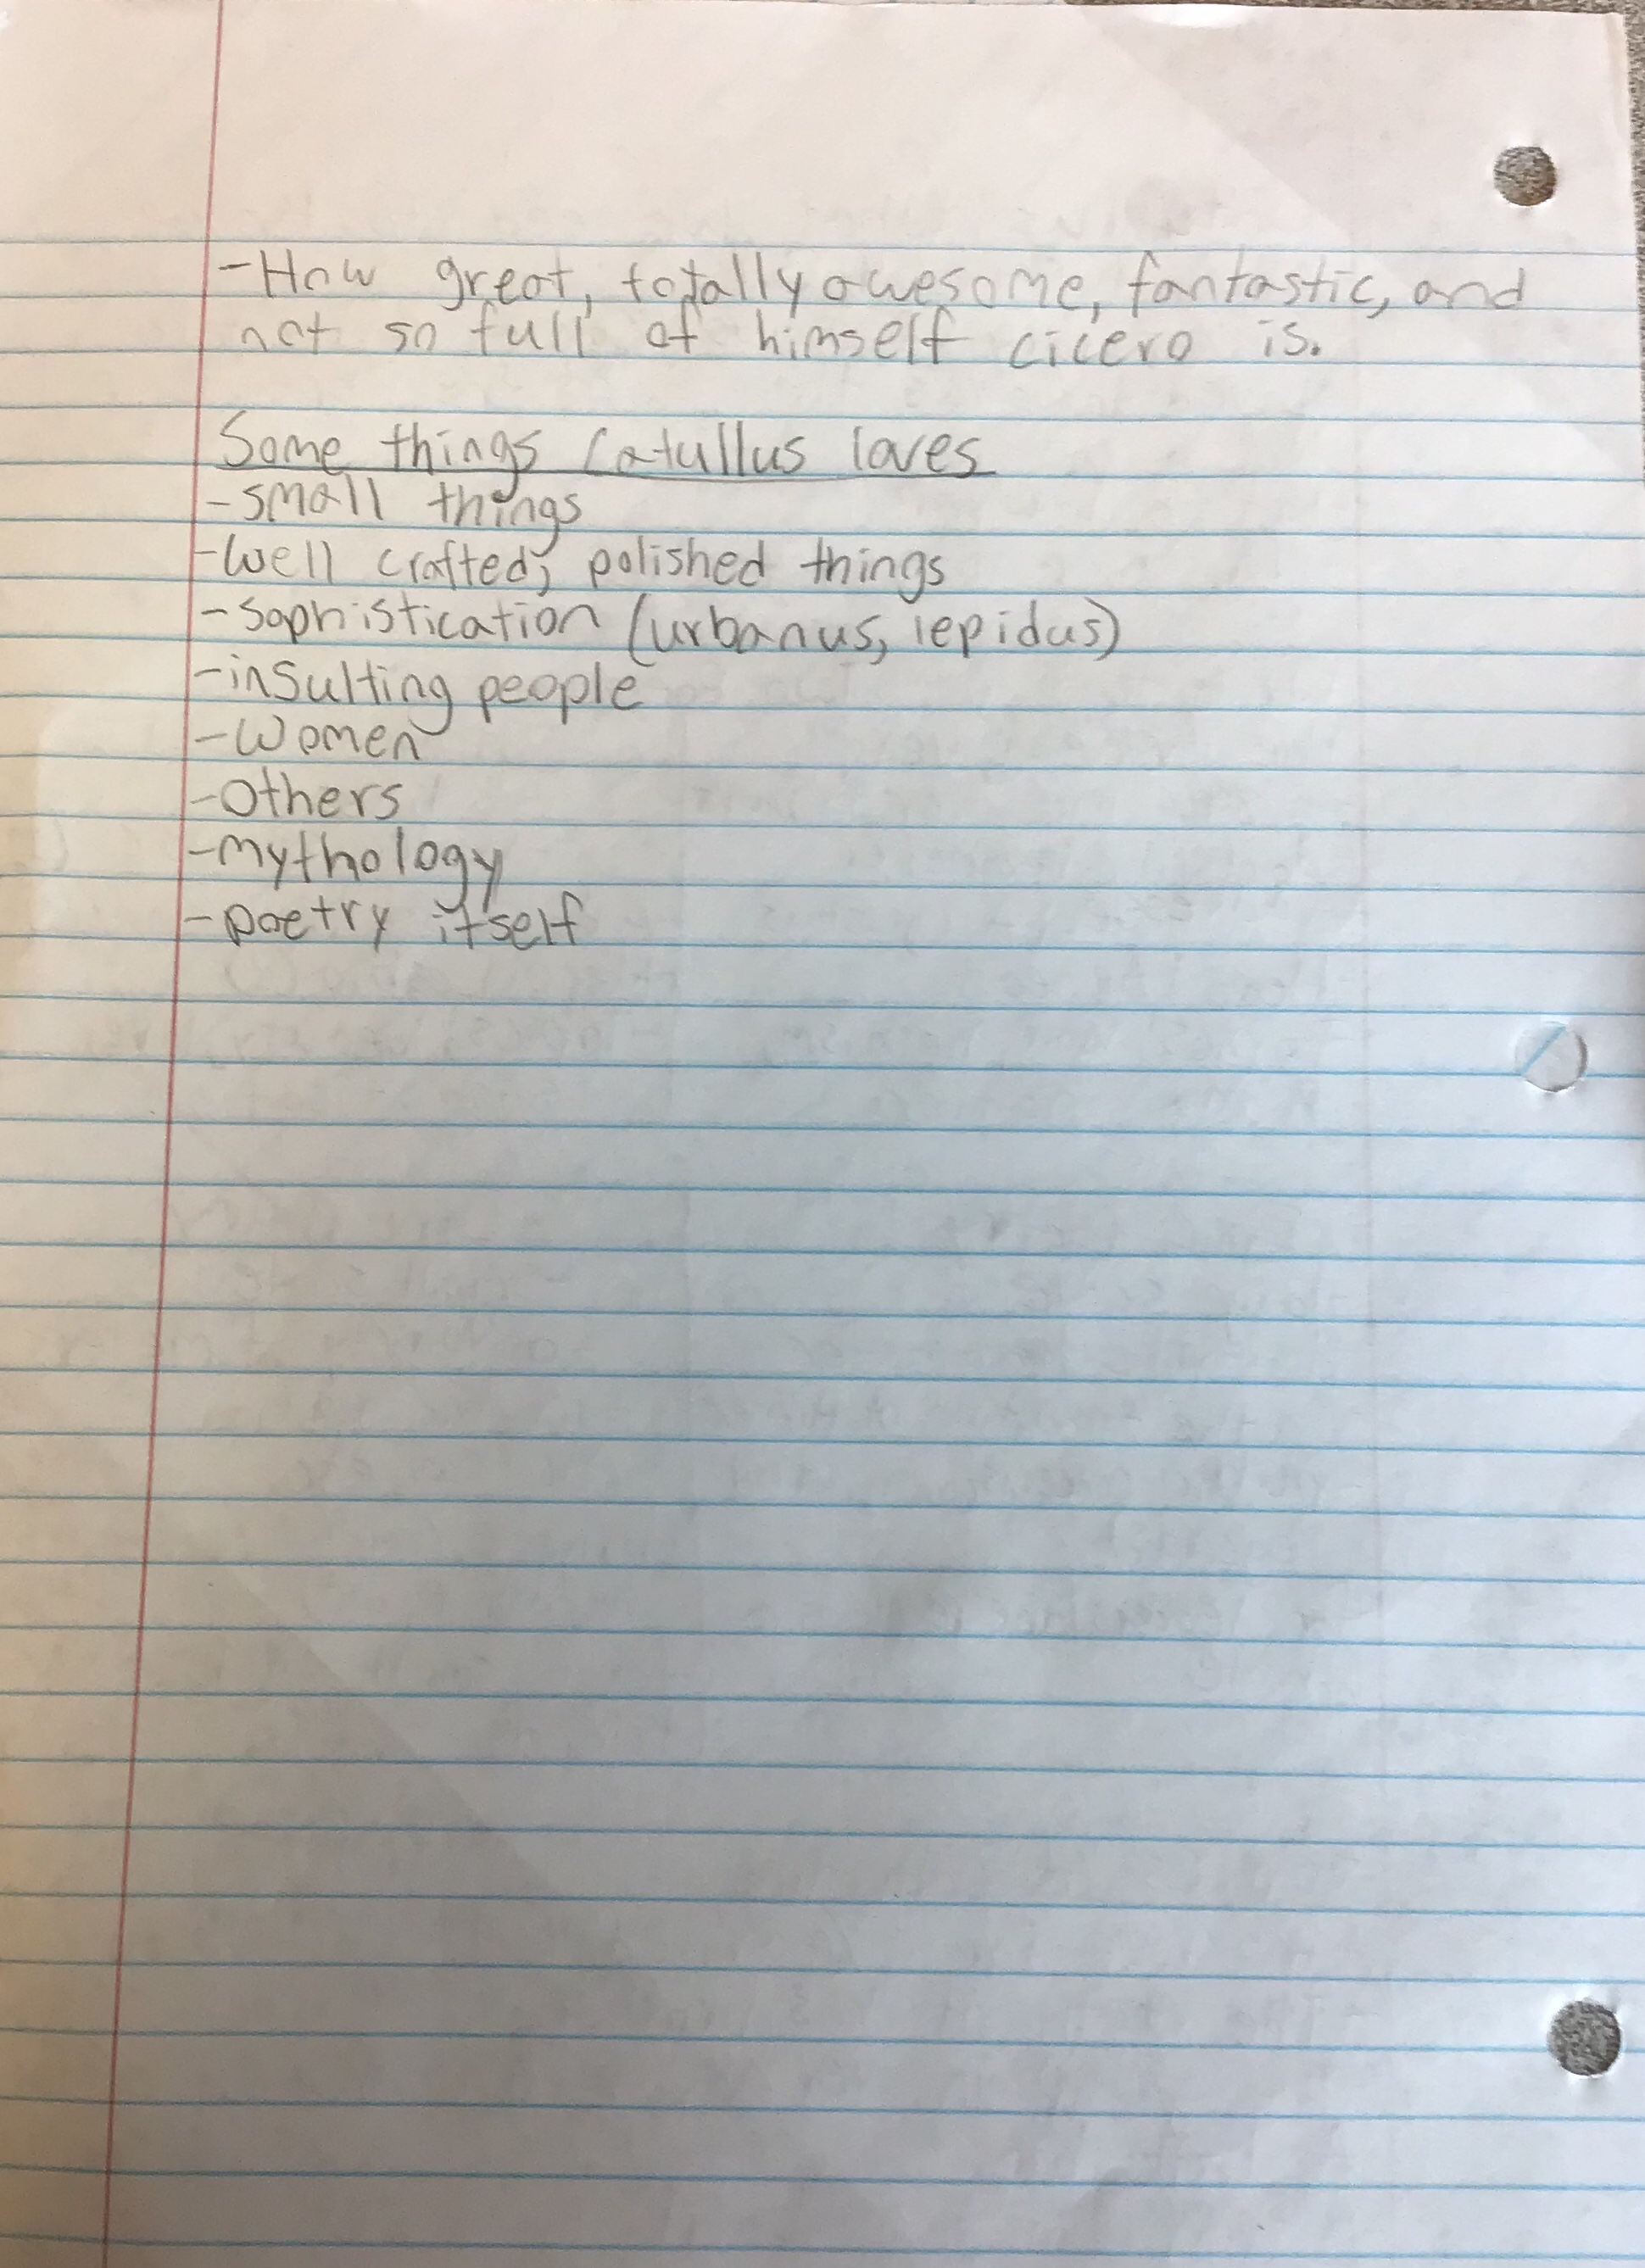 -How great, totally awesome, fantastic, and
not so full of himself cicero is.
Some things Catullus loves
-small things
-well crafted, polished things
-sophistication (urbanus, lepidus)
-insulting people
-women
-others
-mythology
-poetry itself